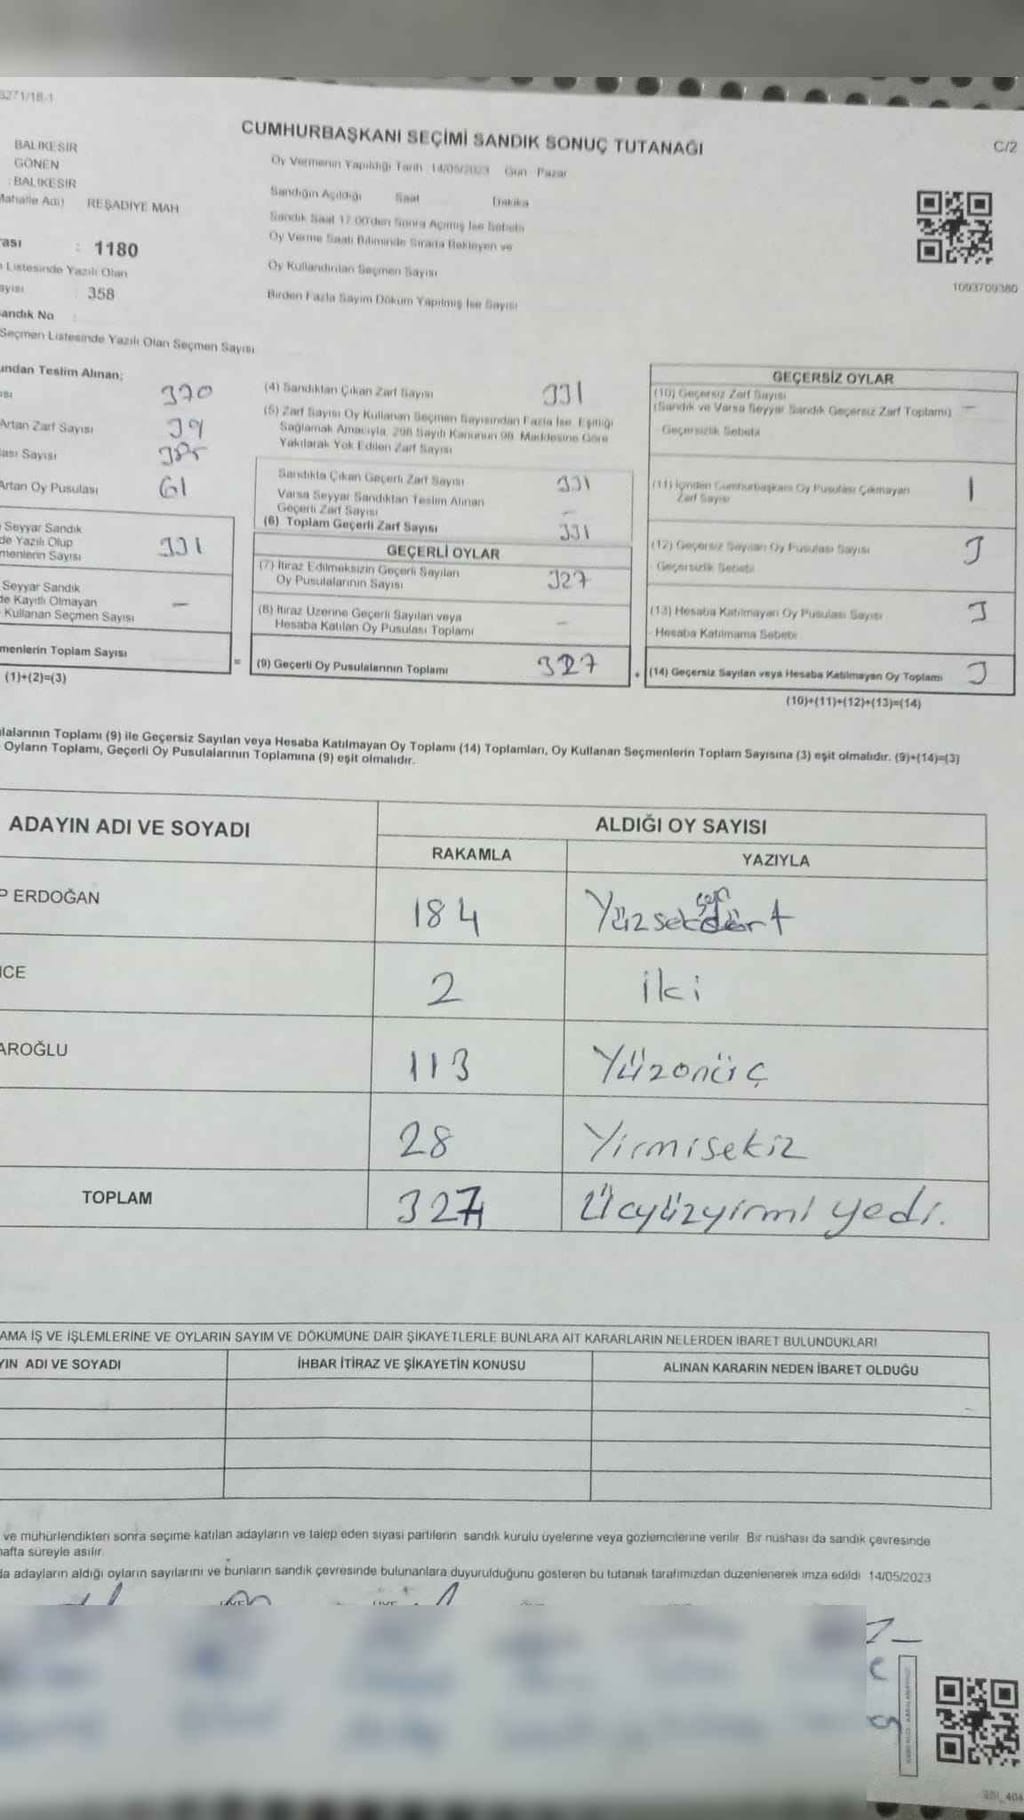 CUMHURBAŞKANI SEÇİMİ SANDIK SONUÇ TUTANAĞI
C/2
BALIKESİR
GÖNEN
BALIKESİR
Mahalle Adı) REŞADİYE MAH
Oy Vermenin Yapıldığı Tarih : 14/05/2023 Gün : Pazar
Sandığın Açıldığı Saat Dakika
Sandık Saat 17.00'den Sonra Açılmış İse Sebebi
Oy Verme Saati Bitiminde Sırada Bekleyen ve
Oy Kullandırılan Seçmen Sayısı
Birden Fazla Sayım Döküm Yapılmış İse Sayısı
1093709380
: 1180
Listesinde Yazılı Olan
358
andık No
Seçmen Listesinde Yazılı Olan Seçmen Sayısı
undan Teslim Alınan;
370
Artan Zarf Sayısı 39
ası Sayısı
Artan Oy Pusulası 61
Seyyar Sandık
de Yazılı Olup
menlerin Sayısı
331
Seyyar Sandık
de Kayıtlı Olmayan
Kullanan Seçmen Sayısı
—
menlerin Toplam Sayısı
=
(1)+(2)=(3)
(4) Sandıktan Çıkan Zarf Sayısı 331
(5) Zarf Sayısı Oy Kullanan Seçmen Sayısından Fazla İse, Eşitliği
Sağlamak Amacıyla, 298 Sayılı Kanunun 98. Maddesine Göre
Yakılarak Yok Edilen Zarf Sayısı
Sandıkta Çıkan Geçerli Zarf Sayısı 331
Varsa Seyyar Sandıktan Teslim Alınan
Geçerli Zarf Sayısı –
(6) Toplam Geçerli Zarf Sayısı 331
GEÇERLİ OYLAR
(7) İtiraz Edilmeksizin Geçerli Sayılan
Oy Pusulalarının Sayısı 327
(8) İtiraz Üzerine Geçerli Sayılan veya
Hesaba Katılan Oy Pusulası Toplamı –
(9) Geçerli Oy Pusulalarının Toplamı 327
+
GEÇERSİZ OYLAR
(10) Geçersiz Zarf Sayısı –
(Sandık ve Varsa Seyyar Sandık Geçersiz Zarf Toplamı)
Geçersizlik Sebebi
(11) İçinden Cumhurbaşkanı Oy Pusulası Çıkmayan
Zarf Sayısı 1
(12) Geçersiz Sayılan Oy Pusulası Sayısı 3
Geçersizlik Sebebi
(13) Hesaba Katılmayan Oy Pusulası Sayısı 3
Hesaba Katılmama Sebebi
(14) Geçersiz Sayılan veya Hesaba Katılmayan Oy Toplamı 3
(10)+(11)+(12)+(13)=(14)
ulalarının Toplamı (9) ile Geçersiz Sayılan veya Hesaba Katılmayan Oy Toplamı (14) Toplamları, Oy Kullanan Seçmenlerin Toplam Sayısına (3) eşit olmalıdır. (9)+(14)=(3)
Oyların Toplamı, Geçerli Oy Pusulalarının Toplamına (9) eşit olmalıdır.
ADAYIN ADI VE SOYADI
ALDIĞI OY SAYISI
RAKAMLA YAZIYLA
P ERDOĞAN 184 Yüzseksendört
NCE 2 iki
AROĞLU 113 Yüzonüç
28 Yirmisekiz
TOPLAM 327 Üçyüzyirmi yedi.
AMA İŞ VE İŞLEMLERİNE VE OYLARIN SAYIM VE DÖKÜMÜNE DAİR ŞİKAYETLERLE BUNLARA AİT KARARLARIN NELERDEN İBARET BULUNDUKLARI
YIN ADI VE SOYADI
İHBAR İTİRAZ VE ŞİKAYETİN KONUSU
ALINAN KARARIN NEDEN İBARET OLDUĞU
ve mühürlendikten sonra seçime katılan adayların ve talep eden siyasi partilerin sandık kurulu üyelerine veya gözlemcilerine verilir. Bir nüshası da sandık çevresinde
hafta süreyle asılır.
da adayların aldığı oyların sayılarını ve bunların sandık çevresinde bulunanlara duyurulduğunu gösteren bu tutanak tarafımızdan düzenlenerek imza edildi 14/05/2023